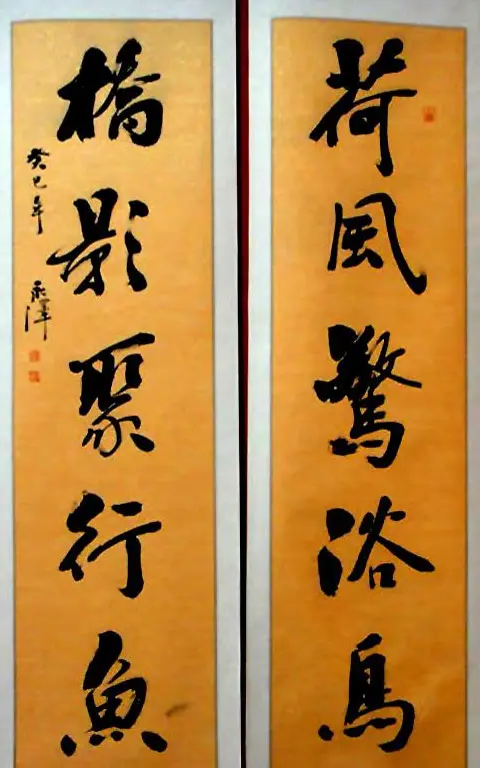 荷風驚浴鳥
橋影聚行魚
癸巳年